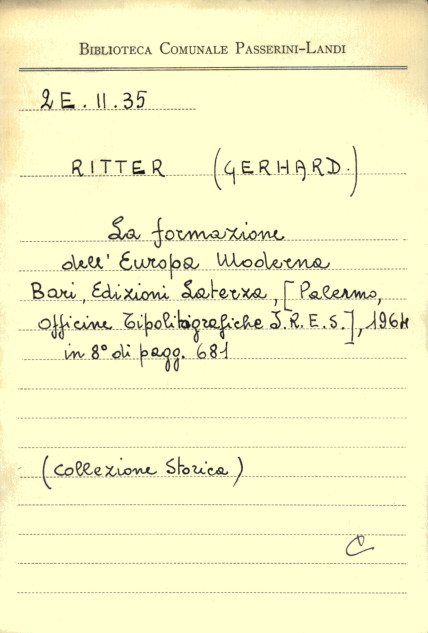 BIBLIOTECA COMUNALE PASSERINI-LANDI
2 E . II . 35
RITTER (GERHARD.)
La formazione
dell' Europa Moderna
Bari, Edizioni Laterza, [Palermo,
Officine Tipolitografiche I.R.E.S.], 1964
in 8° di pagg. 681
(Collezione Storica)